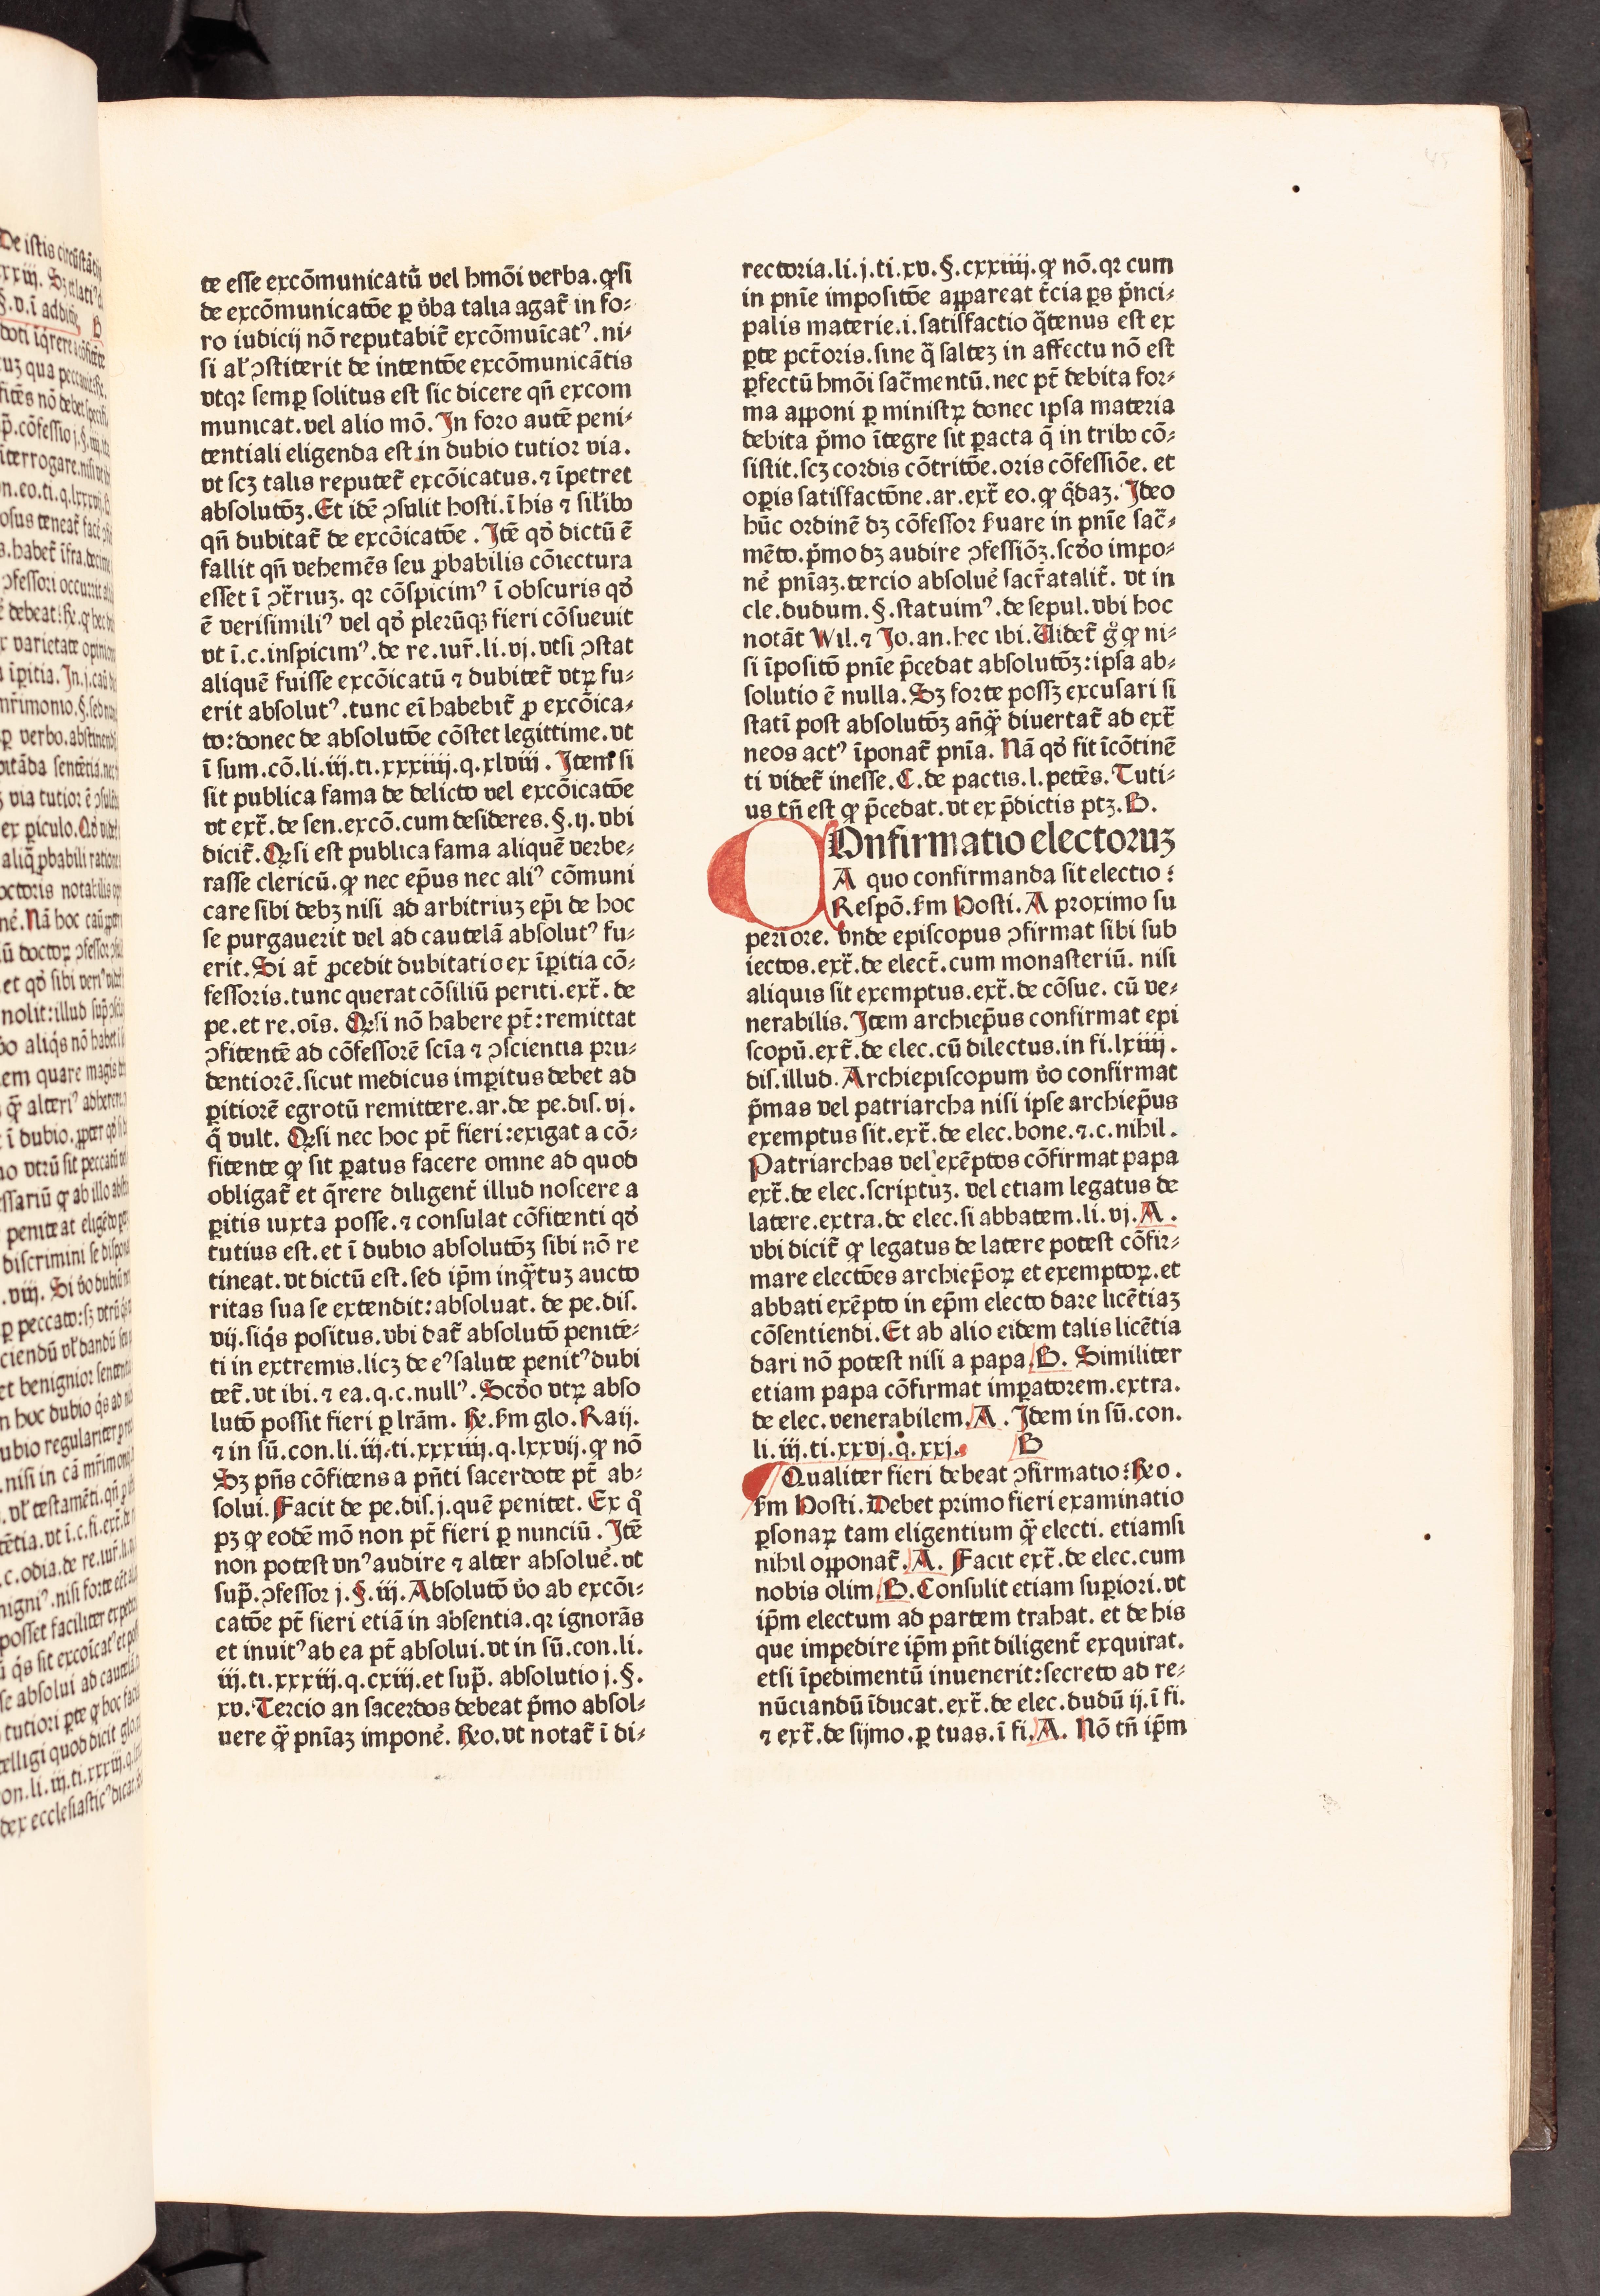 te esse excōmunicatū vel hmōi verba.ꝙ si
de excōmunicatōe ꝑ v̓ba talia agat̄ in fo⸗
ro iudicij nō reputabit̄ excōmuīcatꝰ.ni⸗
si al̓ ꝯstiterit de intentōe excōmunicātis
vtqꝛ semꝑ solitus est sic dicere qn̄ excom
municat.vel alio mō. In foro autē peni⸗
tentiali eligenda est in dubio tutior via.
vt scꝫ talis reputet̄ excōicatus.⁊ īpetret
absolutōꝫ.Et idē ꝯsulit hosti.ī his ⁊ silibꝰ
qn̄ dubitat̄ de excōicatōe. Itē qd̓ dictū ē
fallit qn̄ vehemēs seu ꝓbabilis cōiectura
esset ī ꝯt̄riuꝫ. qꝛ cōspicimꝰ ī obscuris qd̓
ē verisimiliꝰ vel qd̓ plerūqꝫ fieri cōsueuit
vt ī.c.inspicimꝰ.de re.iur̄.li.vj.vtsi ꝯstat
aliquē fuisse excōicatū ⁊ dubitet̄ vtꝝ fu⸗
erit absolutꝰ.tunc eī habebit̄ ꝓ excōica⸗
to:donec de absolutōe cōstet legittime.vt
ī sum.cō.li.iij.ti.xxxiiij.q.xlviii. Item si
sit publica fama de delicto vel excōicatōe
vt ext̄.de sen.excō.cum desideres.§.ij.vbi
dicit̄.Qꝛ si est publica fama aliquē verbe⸗
rasse clericū.ꝙ nec ep̄us nec aliꝰ cōmuni
care sibi debꝫ nisi ad arbitriuꝫ ep̄i de hoc
se purgauerit vel ad cautelā absolutꝰ fu⸗
erit.Si at̄ ꝓcedit dubitatio ex īꝑitia cō⸗
fessoris.tunc querat cōsiliū periti.ext̄.de
pe.et re.oīs. Qꝛ si nō habere pt̄:remittat
ꝯfitentē ad cōfessorē scīa ⁊ ꝯscientia pru⸗
dentiorē.sicut medicus imꝑitus debet ad
ꝑitiorē egrotū remittere.ar.de pe.dis.vj.
q̄ vult. Qꝛ si nec hoc pt̄ fieri:exigat a cō⸗
fitente ꝙ sit ꝑatus facere omne ad quod
obligat̄ et q̄rere diligent̄ illud noscere a
ꝑitis iuxta posse.⁊ consulat cōfitenti qd̓
tutius est.et ī dubio absolutōꝫ sibi nō re
tineat.vt dictū est.sed ip̄m inq̄ꝫtuꝫ aucto
ritas sua se extendit:absoluat. de pe.dis.
vij.siq̄s positus.vbi dat̄ absolutō penitē⸗
ti in extremis.licꝫ de eꝰ salute penitꝰ dubi
tet̄.vt ibi.⁊ ea.q.c.nullꝰ. Scd̓o vtꝝ abso
lutō possit fieri ꝑ lrām. R̄e.ẜm glo. Raij.
⁊ in sū.con.li.iij.ti.xxxiiij.q.lxxvij.ꝙ nō
Sꝫ pn̄s cōfitens a pn̄ti sacerdote pt̄ ab⸗
solui. Facit de pe.dis.j.quē penitet. Ex qͦ
pꝫ ꝙ eodē mō non pt̄ fieri ꝑ nunciū. Itē
non potest vnꝰ audire ⁊ alter absolue̓.vt
sup̄.ꝯfessor j.§.iij. Absolutō v̓o ab excōi⸗
catōe pt̄ fieri etiā in absentia.qꝛ ignorās
et inuitꝰ ab ea pt̄ absolui.vt in sū.con.li.
iij.ti.xxxiij.q.cxiij.et sup̄. absolutio j.§.
xv. Tercio an sacerdos debeat p̄mo absol⸗
uere q̄ꝫ pnīaꝫ impone̓. R̄eo.vt notat̄ ī di⸗
rectoria.li.j.ti.xv.§.cxxiiij.ꝙ nō.qꝛ cum
in pnīe impositōe appareat t̄cia ꝑs p̄nci⸗
palis materie.i.satisfactio q̄tenus est ex
ꝑte pct̄oris.sine q̄ salteꝫ in affectu nō est
ꝑfectū hmōi sac̄mentū.nec pt̄ debita for⸗
ma apponi ꝑ ministꝝ donec ipsa materia
debita p̄mo ītegre sit ꝑacta q̄ in tribꝰ cō⸗
sistit.scꝫ cordis cōtritōe.oris cōfessiōe.et
oꝑis satisfactōne.ar.ext̄ eo.ꝙ q̄daꝫ. Ideo
hūc ordinē dꝫ cōfessor ẜuare in pnīe sac̄⸗
mēto.p̄mo dꝫ audire ꝯfessiōꝫ.scd̓o impo⸗
ne̓ pnīaꝫ.tercio absolue̓ sacr̄atalit̄. vt in
cle.dudum.§.statuimꝰ.de sepul.vbi hoc
notāt Wil.⁊ Jo.an.hec ibi.Uidet̄ gͦ ꝙ ni⸗
si īpositō pnīe p̄cedat absolutōꝫ:ipsa ab⸗
solutio ē nulla.Sꝫ forte possꝫ excusari si
statī post absolutōꝫ an̄q̄ꝫ diuertat̄ ad ext̄
neos actꝰ īponat̄ pnīa. Nā qd̓ fit īcōtinē
ti videt̄ inesse.C.de pactis.l.petēs.Tuti⸗
us tn̄ est ꝙ p̄cedat.vt ex p̄dictis ptꝫ.B.
COnfirmatio electoruꝫ
A quo confirmanda sit electio:
Respō.ẜm Hosti.A proximo su
periore. vnde episcopus ꝯfirmat sibi sub
iectos.ext̄.de elect̄.cum monasteriū. nisi
aliquis sit exemptus.ext̄.de cōsue. cū ve⸗
nerabilis. Item archiep̄us confirmat epi
scopū.ext̄.de elec.cū dilectus.in fi.lxiiii.
dis.illud. Archiepiscopum v̓o confirmat
p̄mas vel patriarcha nisi ipse archiep̄us
exemptus sit.ext̄.de elec.bone.⁊.c.nihil.
Patriarchas vel exēptos cōfirmat papa
ext̄.de elec.scriptuꝫ. vel etiam legatus de
latere.extra.de elec.si abbatem.li.vj.A.
vbi dicit̄ ꝙ legatus de latere potest cōfir⸗
mare electōes archiep̄oꝝ et exemptoꝝ.et
abbati exēpto in ep̄m electo dare licētiaꝫ
cōsentiendi.Et ab alio eidem talis licētia
dari nō potest nisi a papa.B. Similiter
etiam papa cōfirmat imꝑatorem.extra.
de elec.venerabilem.A. Idem in sū.con.
li.iij.ti.xxvj.q.xxj. B
Qualiter fieri debeat ꝯfirmatio:R̄eo.
ẜm Hosti.Debet primo fieri examinatio
ꝑsonaꝝ tam eligentium q̄ꝫ electi. etiamsi
nihil opponat̄.A. Facit ext̄.de elec.cum
nobis olim.B.Consulit etiam suꝑiori.vt
ip̄m electum ad partem trahat. et de his
que impedire ip̄m pn̄t diligent̄ exquirat.
etsi īpedimentū inuenerit:secreto ad re⸗
nūciandū īducat.ext̄.de elec.dudū ij.ī fi.
⁊ ext̄.de sijmo.ꝑ tuas.ī fi.A. Nō tn̄ ip̄m